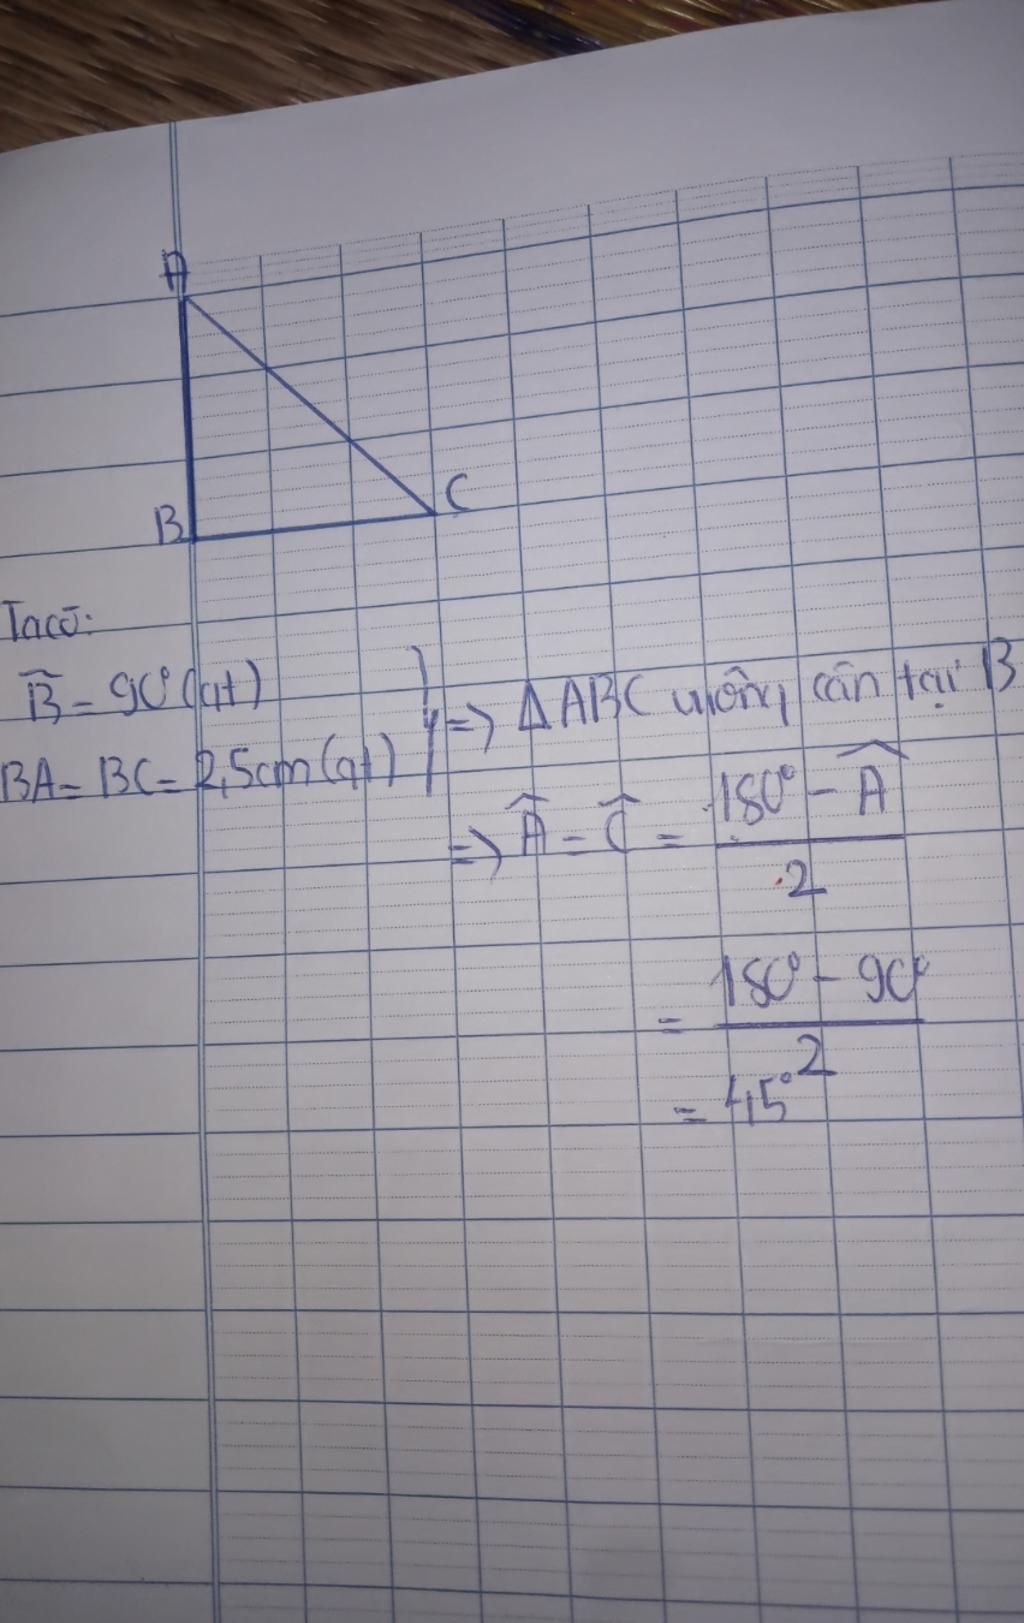 A
B
C
Ta có:
B̂ = 90° (gt)
BA = BC = 2,5cm (gt)
=> ΔABC vuông cân tại B
=> Â = Ĉ = (180° - Â) / 2
= (180° - 90°) / 2
= 45°